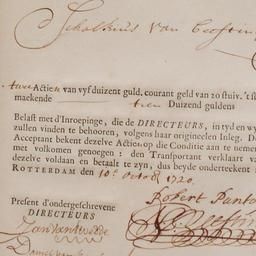 Schalkius Van
twee Actien van vyf duizent guld. courant geld van 20 stuiv. 't
maekende tien Duizend guldens
Belast met d'Inroepinge, die de DIRECTEURS, in tyd en
zullen vinden te behooren, volgens haar origineelen Inleg. D
Acceptant bekent dezelve Actien op die Conditie aan te nemen
met volkomen genoegen: den Transportant verklaart
dezelve voldaan en betaalt te zyn, dus beyde onderteekent
ROTTERDAM den 10e October 1720.
Present d'ondergeschrevene Robert
DIRECTEURS
Jan van
Daniel van